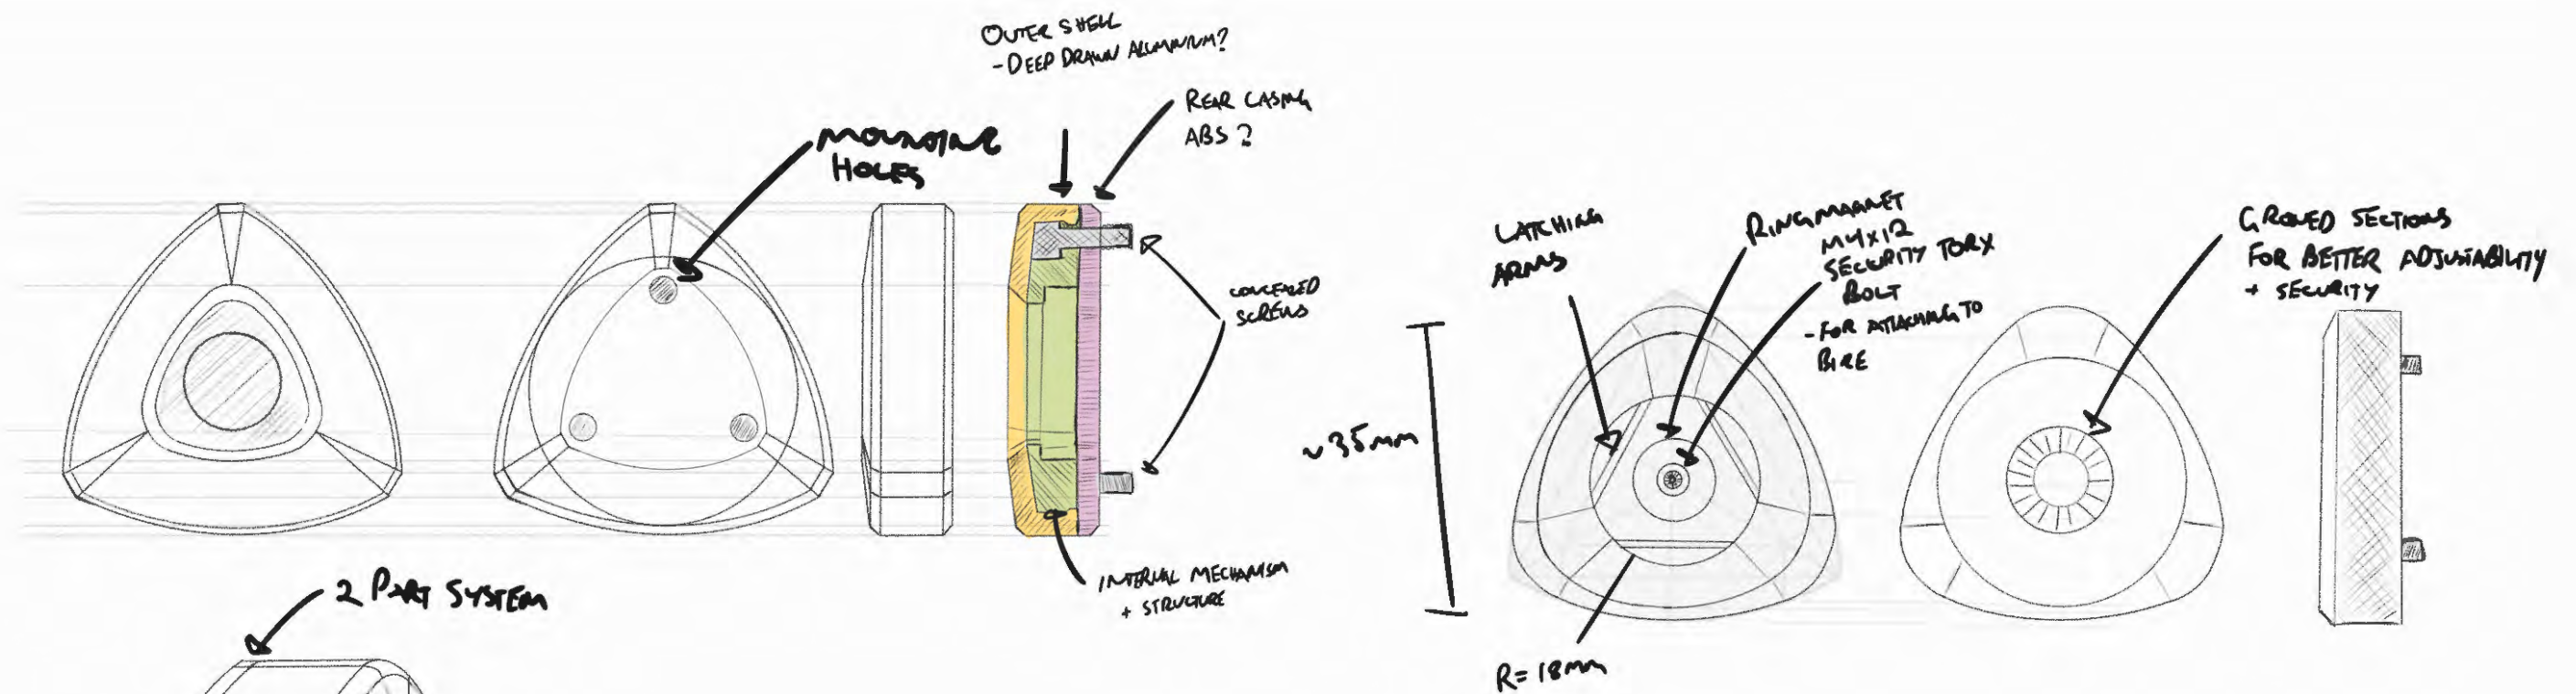 OUTER SHELL
- DEEP DRAWN ALUMINIUM?
REAR CASING
ABS?
MOUNTING
HOLES
CONCEALED
SCREWS
INTERNAL MECHANISM
+ STRUCTURE
2 PART SYSTEM
LATCHING
ARMS
RING MAGNET
M4x12
SECURITY TORX
BOLT
- FOR ATTACHING TO
BIKE
~35mm
R=18mm
GROVED SECTIONS
FOR BETTER ADJUSTABILITY
+ SECURITY